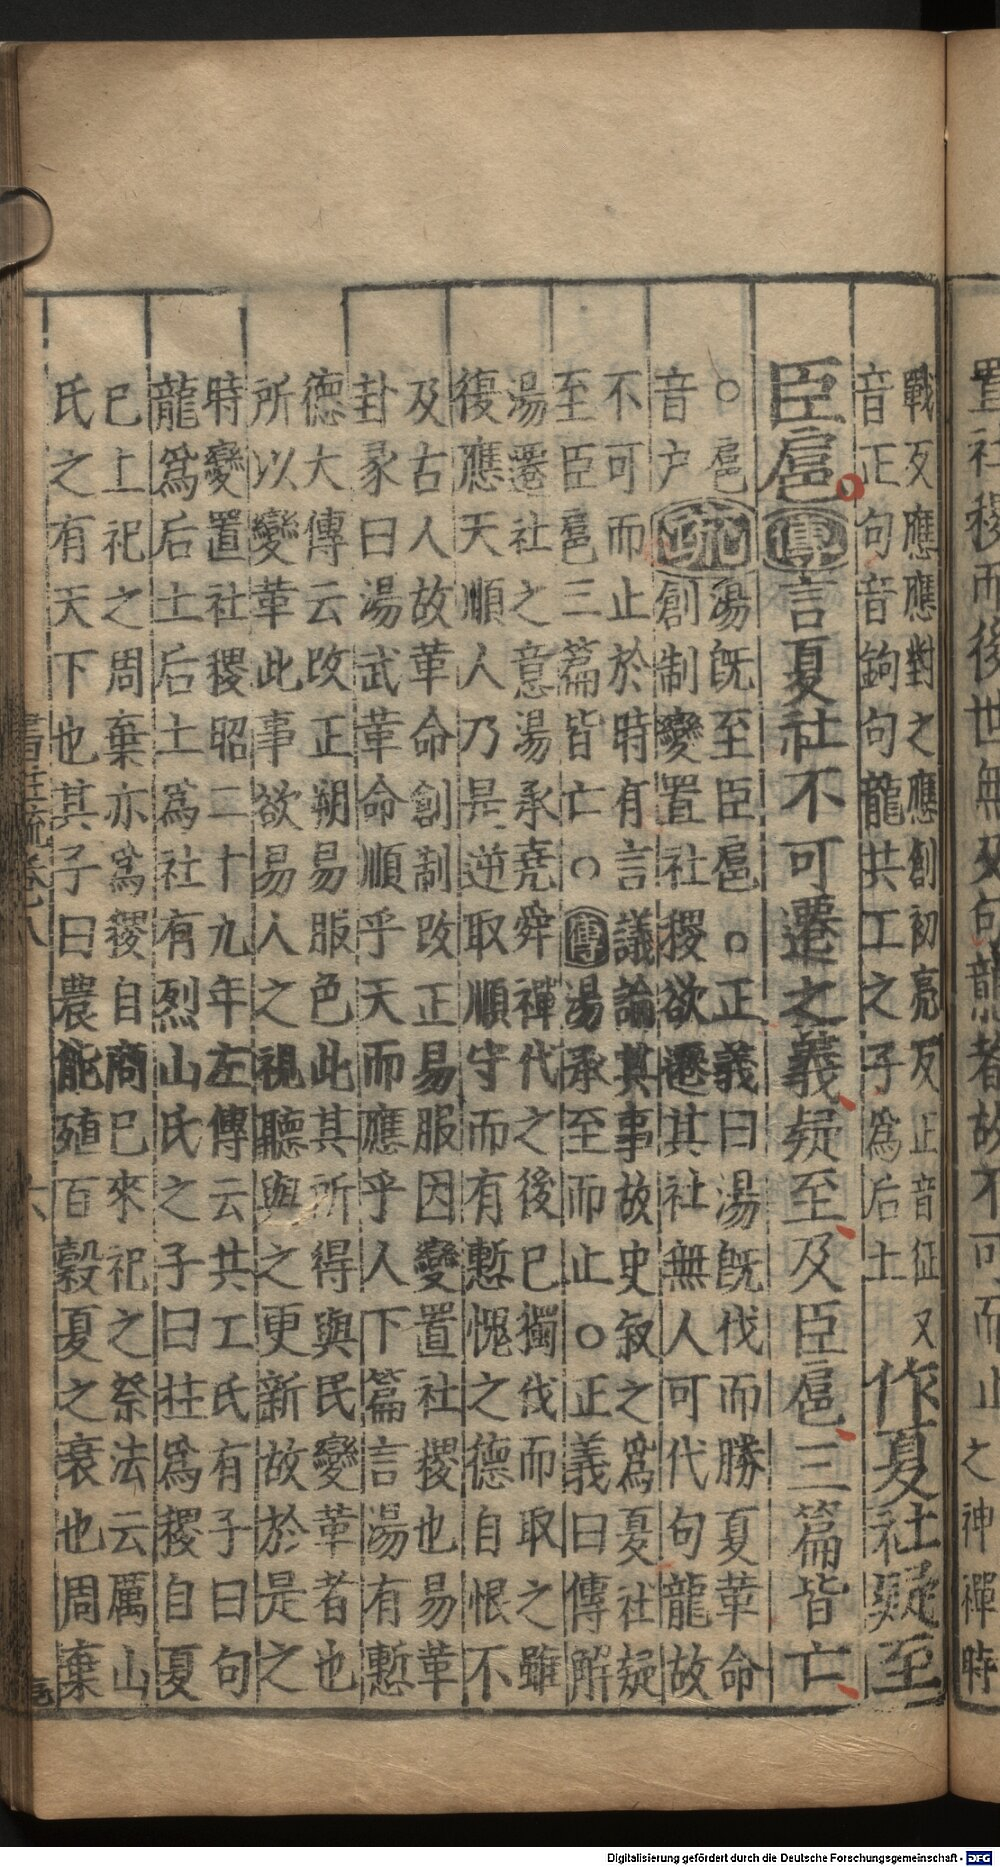 置社稷而後世無及句龍者故不可而止之神禪時
戰反應應對之應創初亮反止音征又
音正句音鉤句龍共工之子爲后土
作夏社疑至
臣扈傳言夏社不可遷之義疑至及臣扈三篇皆亡
○扈
音户
疏
湯旣至臣扈○正義曰湯旣伐而勝夏革命
創制變置社稷欲遷其社無人可代句龍故
不可而止於時有言議論其事故史叙之爲夏社疑
至臣扈三篇皆亡○傳湯承至而止○正義曰傳解
湯遷社之意湯承堯舜禪代之後巳獨伐而取之雖
復應天順人乃是逆取順守而有慙愧之德自恨不
及古人故革命創制改正易服因變置社稷也易革
封彖曰湯武革命順乎天而應乎人下篇言湯有慙
德大傳云改正朔易服色此其所得與民變革者也
所以變革此事欲易人之視聽與之更新故於是之
時變置社稷昭二十九年左傳云共工氏有子曰句
龍爲后土后土爲社有烈山氏之子曰柱爲稷自夏
巳上祀之周棄亦爲稷自商巳來祀之祭法云厲山
氏之有天下也其子曰農能殖百穀夏之衰也周棄
書註疏卷八
六
Digitalisierung gefördert durch die Deutsche Forschungsgemeinschaft - DFG